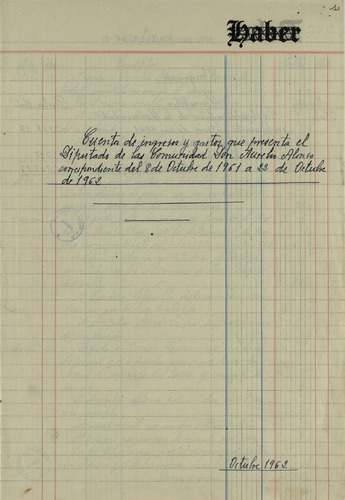 Haber
Cuenta de ingresos y gastos que presenta el
Diputado de las Comunidad Don Aurelio Alonso
correspondiente del 8 de Octubre de 1961 a 22 de Octubre
de 1962
Octubre 1962